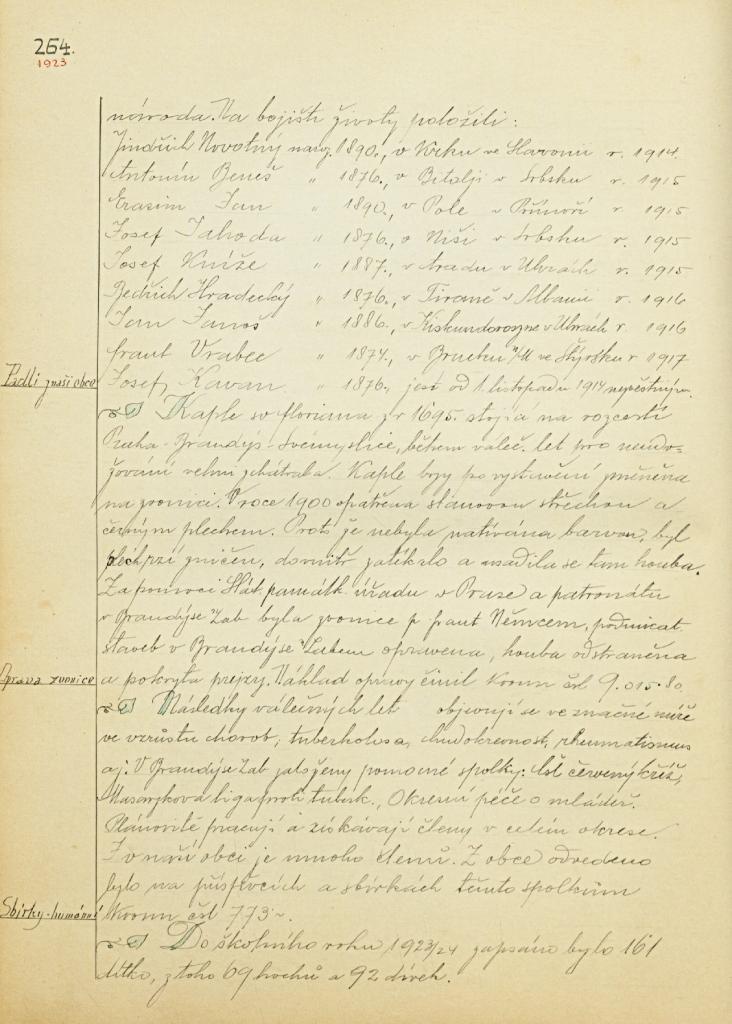 264.
1923
národa. Na bojišti životy položili:
Jindřich Novotný naroz. 1890., v Krku ve Slavonii r. 1914.
Antonín Beneš " 1876., v Bitolji v Srbsku r. 1915
Erasim Jan " 1890., v Pole v Přímoří r. 1915
Josef Jahoda " 1876., v Niši v Srbsku r. 1915
Josef Kníže " 1887., v Aradu v Uhrách r. 1915
Bedřich Hradecký " 1876., v Tiraně v Albanii r. 1916
Jan Janoš " 1886., v Kiskundorozme v Uhrách r. 1916
Frant Vrabec " 1874., v Brucku n/M ve Štýrsku r 1917
Padlí z naší obce
Josef Kavan " 1876., jest od 1. listopadu 1914 nezvěstným.
Kaple sv Floriana z r 1695. stojící na rozcestí
Praha - Brandýs - Svémyslice, během váleč. let pro neudr-
žování velmi zchátrala. Kaple byvši po vystavění změněna
na zvonici. V roce 1900 opatřena stanovou střechou a
černým plechem. Proto že nebyla natírána barvou, byl
plech rzí zničen, dovnitř zatékalo a usadila se tam houba.
Za pomoci Stát. památk. úřadu v Praze a patronátu
v Brandýse n/Lab byla zvonice p. Frant Němcem, podnikat.
staveb v Brandýse n/Labem opravena, houba odstraněna
Oprava zvonice
a pokryta prejzy. Náklad opravy činil Korun čsl 9.015.80.
Následky válečných let objevují se ve značné míře
ve vzrůstu chorob, tuberkulosa, chudokrevnost, rheumatismus
aj. V Brandýse n/Lab založeny pomocné spolky: Čsl červený kříž,
Masarykova liga proti tuberk., Okresní péče o mládež.
Plánovitě pracují a získávají členy v celém okrese.
I v naší obci je mnoho členů. Z obce odvedeno
bylo na příspěvcích a sbírkách těmto spolkům
Sbírky-humánní
Korun čsl 773~.
Do školního roku 1923/24 zapsáno bylo 161
dítko, z toho 69 hochů a 92 dívek.